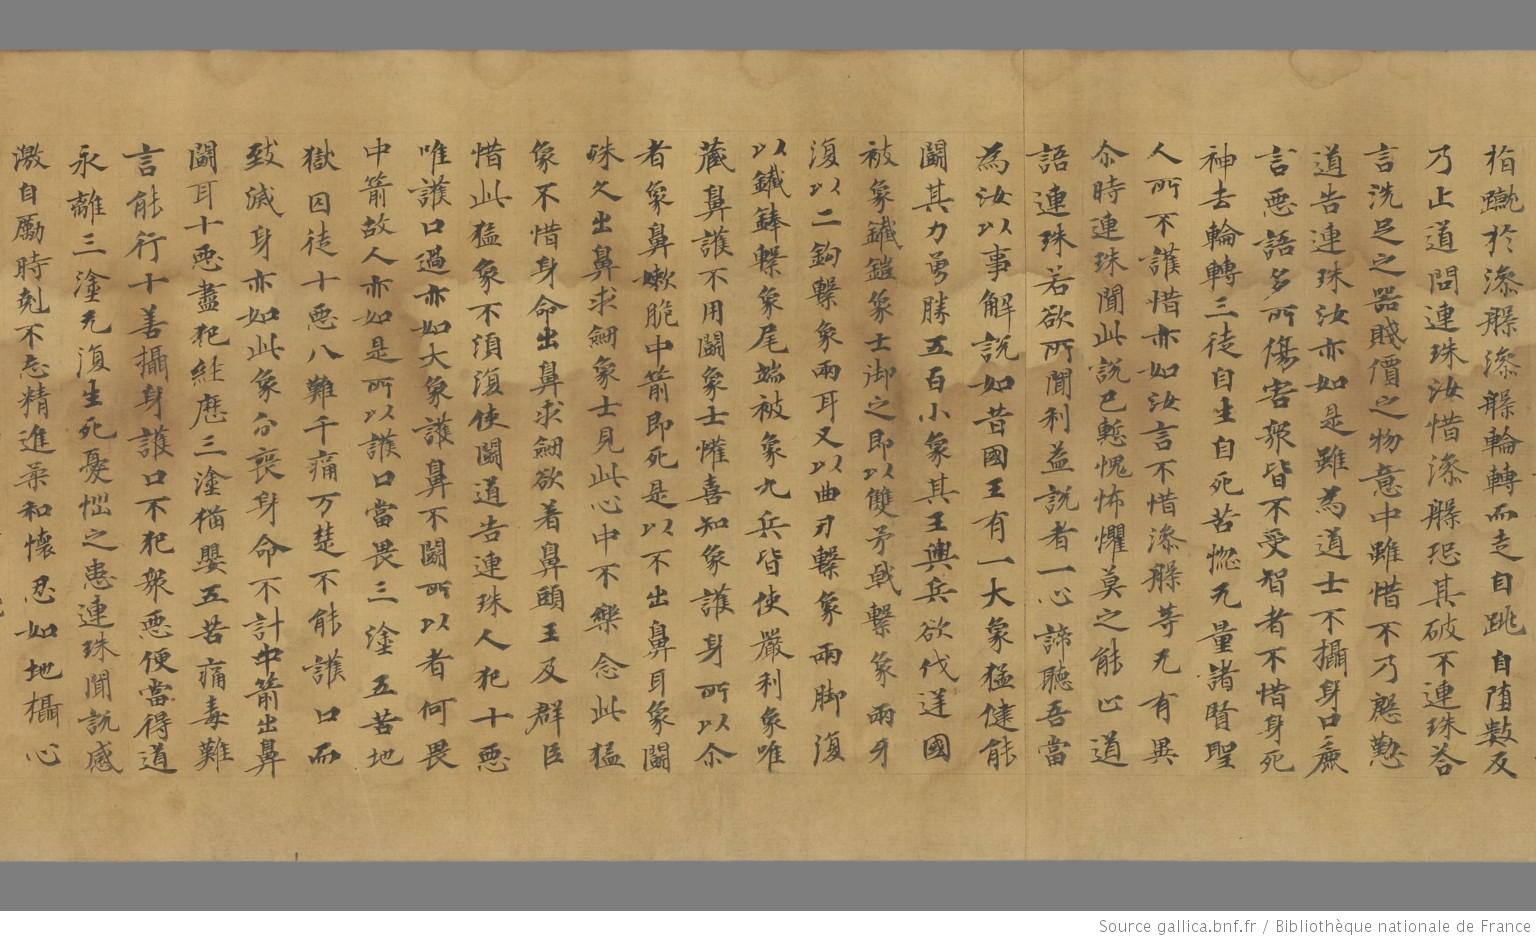 指蹴於漆躶漆躶輪轉而走自跳自墮數反
乃止道問連珠汝惜漆躶恐其破不連珠荅
言洗足之器賤價之物意中雖惜不乃慇懃
道告連珠汝亦如是雖為道士不攝身口麁
言惡語多所傷害衆皆不受智者不惜身死
神去輪轉三徒自生自死苦惚无量諸賢聖
人所不護惜亦如汝言不惜漆躶等无有異
尒時連珠聞此說已慙愧怖懼莫之能止道
語連珠若欲所聞利益說者一心諦聽吾當
為汝以事解說如昔國王有一大象猛健能
鬪其力勇勝五百小象其王輿兵欲伐逆國
被象鐵鎧象士御之即以雙矛戟繫象兩牙
復以二鉤繫象兩耳又以曲刃繫象兩脚復
以鐵鋒繫象尾端被象九兵皆使嚴利象唯
藏鼻護不用鬪象士懽喜知象護身所以尒
者象鼻嫰脆中箭即死是以不出鼻耳象鬪
殊久出鼻求劒象士見此心中不樂念此猛
象不惜身命出鼻求劒欲着鼻頭王及群臣
惜此猛象不須復使鬪道告連珠人犯十惡
唯護口過亦如大象護鼻不鬪所以者何畏
中箭故人亦如是所以護口當畏三塗五苦地
獄囚徒十惡八難千痛万楚不能護口而
致滅身亦如此象分喪身命不計中箭出鼻
鬪耳十惡盡犯經歷三塗猶嬰五苦痛毒難
言能行十善攝身護口不犯衆惡便當得道
永離三塗无復生死憂惱之患連珠聞說感
激自厲時剋不忘精進柔和懷忍如地攝心